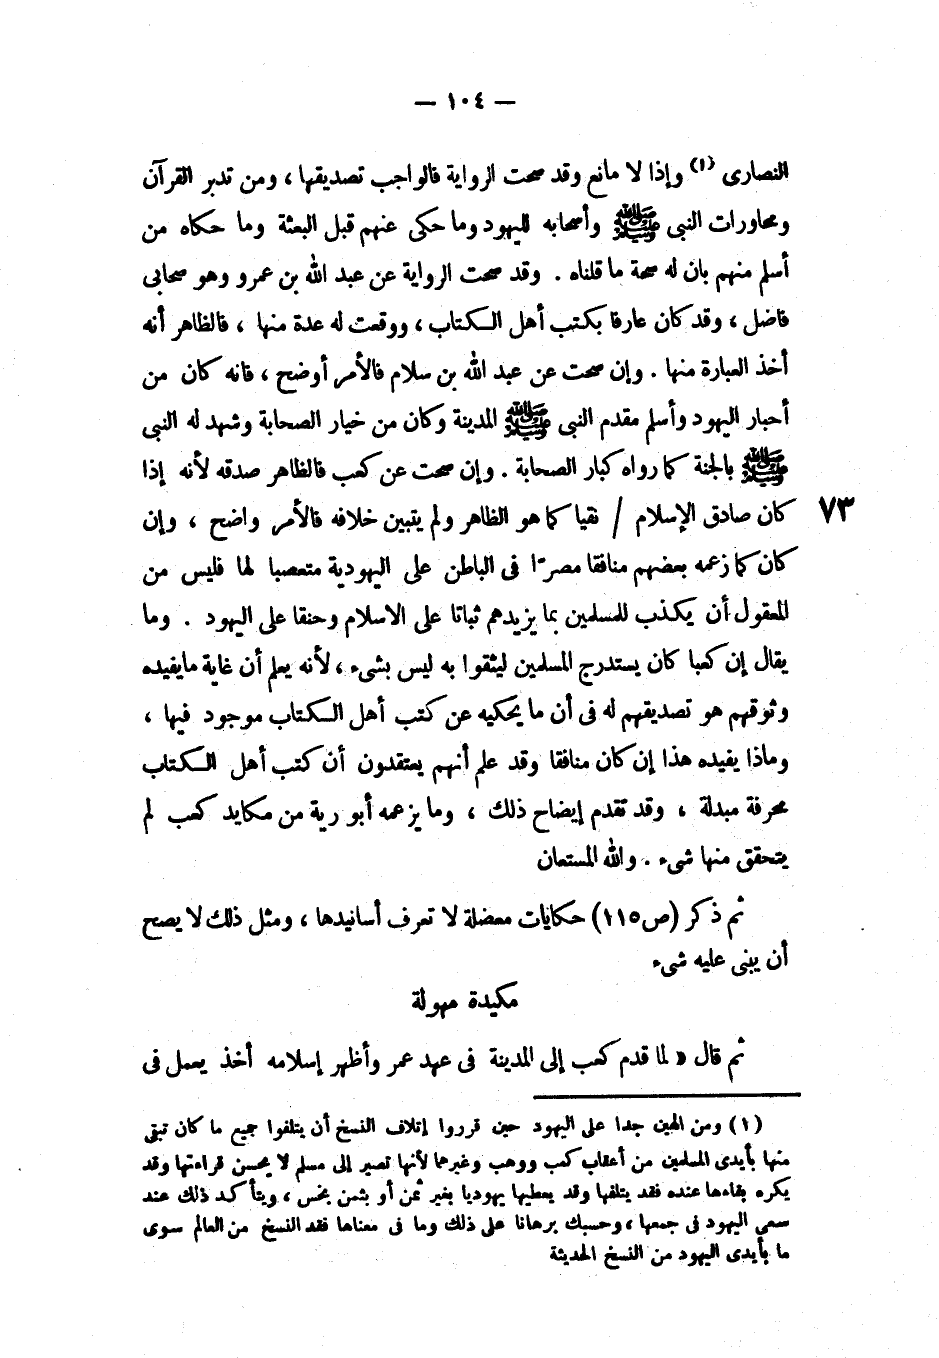 — ١٠٤ —
النصارى (١) وإذا لا مانع وقد صحت الرواية فالواجب تصديقها ، ومن تدبر القرآن
ومحاورات النبى ﷺ وأصحابه لليهود وما حكى عنهم قبل البعثة وما حكاه من
أسلم منهم بان له صحة ما قلناه . وقد صحت الرواية عن عبد الله بن عمرو وهو صحابى
فاضل ، وقد كان عارفا بكتب أهل الكتاب ، ووقعت له عدة منها ، فالظاهر أنه
أخذ العبارة منها . وإن صحت عن عبد الله بن سلام فالأمر أوضح ، فانه كان من
أحبار اليهود وأسلم مقدم النبى ﷺ المدينة وكان من خيار الصحابة وشهد له النبى
ﷺ بالجنة كما رواه كبار الصحابة . وإن صحت عن كعب فالظاهر صدقه لأنه إذا
كان صادق الإسلام / نقيا كما هو الظاهر ولم يتبين خلافه فالأمر واضح ، وإن ٧٣
كان كما زعمه بعضهم منافقا مصرًا فى الباطن على اليهودية متعصبا لها فليس من
المعقول أن يكذب للمسلمين بما يزيدهم ثباتا على الاسلام وحنقا على اليهود . وما
يقال إن كعبا كان يستدرج المسلمين ليثقوا به ليس بشىء ، لأنه يعلم أن غاية مايفيده
وثوقهم هو تصديقهم له فى أن ما يحكيه عن كتب أهل الكتاب موجود فيها ،
وماذا يفيده هذا إن كان منافقا وقد علم أنهم يعتقدون أن كتب أهل الكتاب
محرفة مبدلة ، وقد تقدم إيضاح ذلك ، وما يزعمه أبو رية من مكايد كعب لم
يتحقق منها شىء . والله المستعان
ثم ذكر (ص١١٥) حكايات معضلة لا تعرف أسانيدها ، ومثل ذلك لا يصح
أن يبنى عليه شىء
مكيدة مهولة
ثم قال « لما قدم كعب إلى المدينة فى عهد عمر وأظهر إسلامه أخذ يعمل فى
(١) ومن الهين جدا على اليهود حين قرروا إتلاف النسخ أن يتلفوا جميع ما كان تبقى
منها بأيدى المسلمين من أعقاب كعب ووهب وغيرهما لأنها تصير إلى مسلم لا يحسن قراءتها وقد
يكره بقاءها عنده فقد يتلفها وقد يعطيها يهوديا بغير ثمن أو بثمن بخس ، ويتأكد ذلك عند
سعى اليهود فى جمعها ، وحسبك برهانا على ذلك وما فى معناها فقد النسخ من العالم سوى
ما بأيدى اليهود من النسخ الحديثة